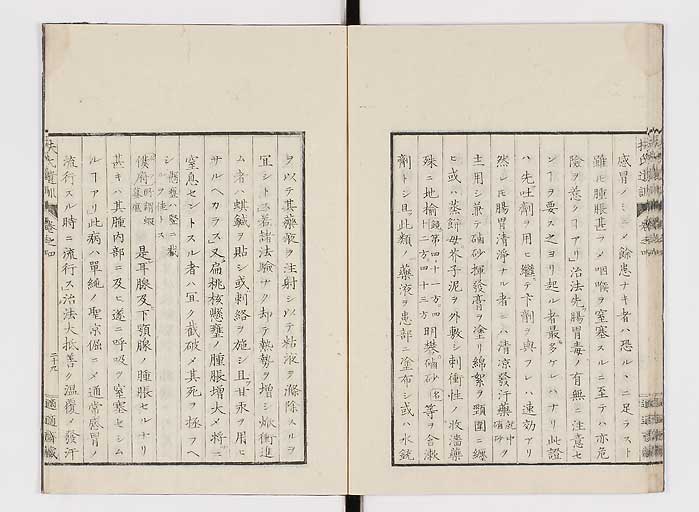 感冒ノミニメ餘患ナキ者ハ恐ルヽニ足ラスト
雖𪜈腫脹甚フメ咽喉ヲ窒塞スルニ至テハ亦危
險ヲ慈クコアリ」治法先腸胃毒ノ有無ニ注意セ
ンコヲ要ス之ヨリ起ル者最多ケレハナリ此證
ハ先吐劑ヲ用ヒ繼テ下劑ヲ與フレハ速効アリ
然レ𪜈腸胃清淨ナル者ニハ清凉發汗藥就中磠砂ヲ
主用シ兼テ磠砂揮發膏ヲ塗リ綿絮ヲ頸圍ニ纏
ヒ或ハ蒸餅母芥子泥ヲ外敷シ刺衝性ノ收濇藥
殊ニ地揄鏡第四十一方四十二方四十三方明礬磠砂各等ヲ含漱
劑トシ且此類ノ藥液ヲ患部ニ塗布シ或ハ水銃
ヲ以テ其藥液ヲ注射シ以テ粘液ヲ滌除スルヲ
冝シトス」若諸法驗ナク却テ熱勢ヲ增シ焮衝進
ム者ハ蜞鍼ヲ貼シ或刺絡ヲ施シ且甘汞ヲ用ヒ
サルヘカラス」又扁桃核懸壅ノ腫脹增大メ將ニ
窒息セントスル者ハ冝ク截破メ其死ヲ拯フヘ
シ懸壅ハ竪ニ截ルヲ佳トス
傑府所謂蝦蟇瘟 是耳腺及下顎腺ノ腫脹セルナリ
甚キハ其腫内部ニ及ヒ遂ニ呼吸ヲ窒塞セシム
ルコアリ」此病ハ單純ノ聖京倔ニメ通常感冒ノ
流行スル時ニ流行ス治法大抵善ク温覆メ發汗
扶氏遺訓 卷之四
二十九
適適齋藏